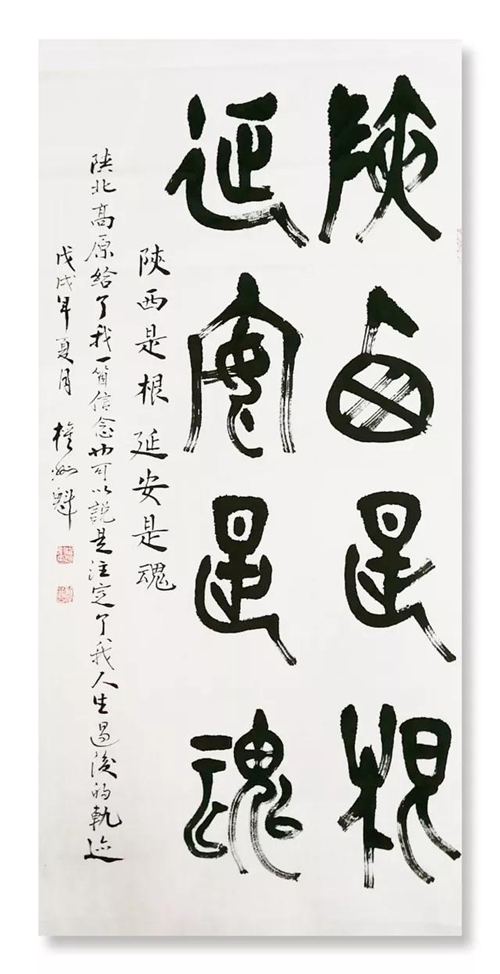 陝西是根
延安是魂
陝西是根 延安是魂
陝北高原給了我一箇信念也可以說是注定了我人生過後的軌迹
戊戌年夏月